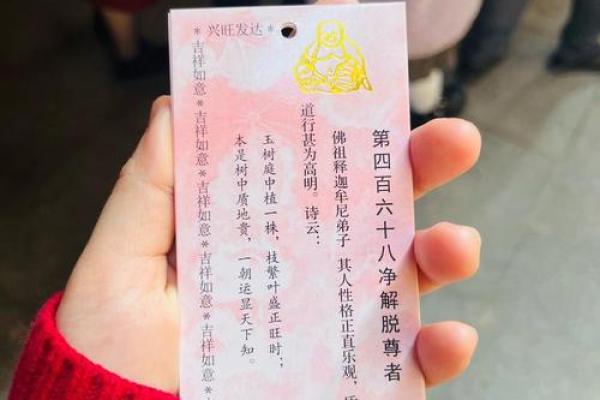 * 兴旺发达 *
第四百六十八净解脱尊者
佛祖释迦牟尼弟子 其人性格正直乐观，
道行甚为高明。诗云：
玉树庭中植一株，枝繁叶盛正旺时；
本是树中质地贵，一朝运显天下知。
吉祥如意*吉祥如意*吉祥如意*吉祥如意*吉祥如意*